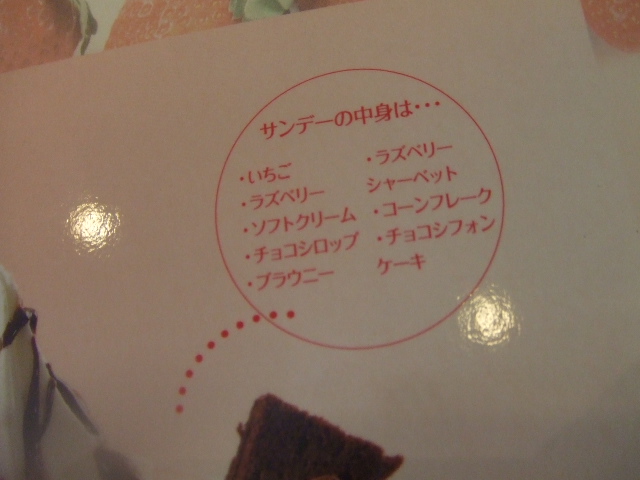 サンデーの中身は・・・
・いちご
・ラズベリー
・ソフトクリーム
・チョコシロップ
・ブラウニー
・ラズベリー
シャーベット
・コーンフレーク
・チョコシフォン
ケーキ